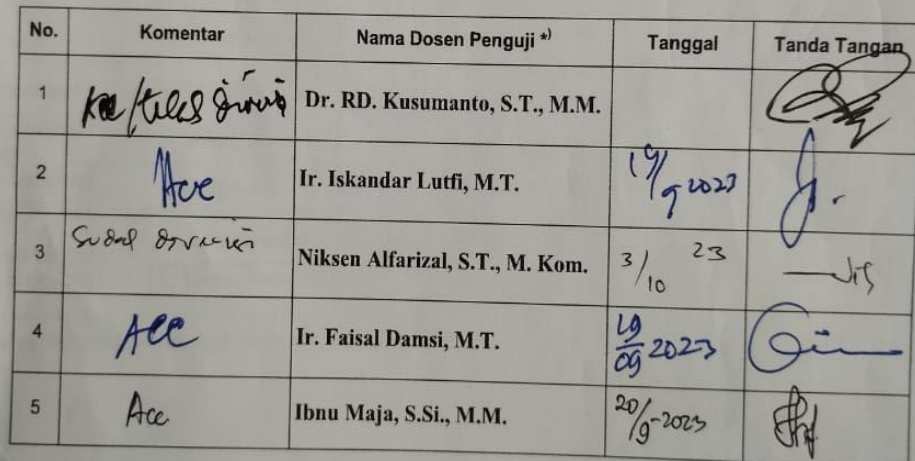 No. Komentar Nama Dosen Penguji *) Tanggal Tanda Tangan
1 Acc/telah direvisi Dr. RD. Kusumanto, S.T., M.M.
2 Acc Ir. Iskandar Lutfi, M.T. 19/9 2023
3 Sudah direvisi Niksen Alfarizal, S.T., M. Kom. 3/10 23
4 Acc Ir. Faisal Damsi, M.T. 19/09 2023
5 Acc Ibnu Maja, S.Si., M.M. 20/9-2023